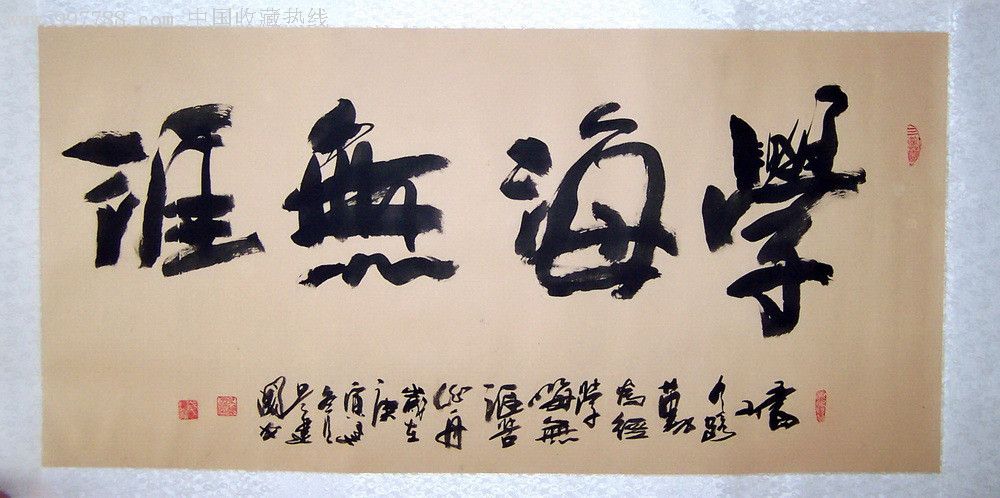 www.997788.com 中国收藏热线
學海無涯
書山
有路
勤
為徑
學
海無
涯苦
作舟
歲在
庚
寅
冬月